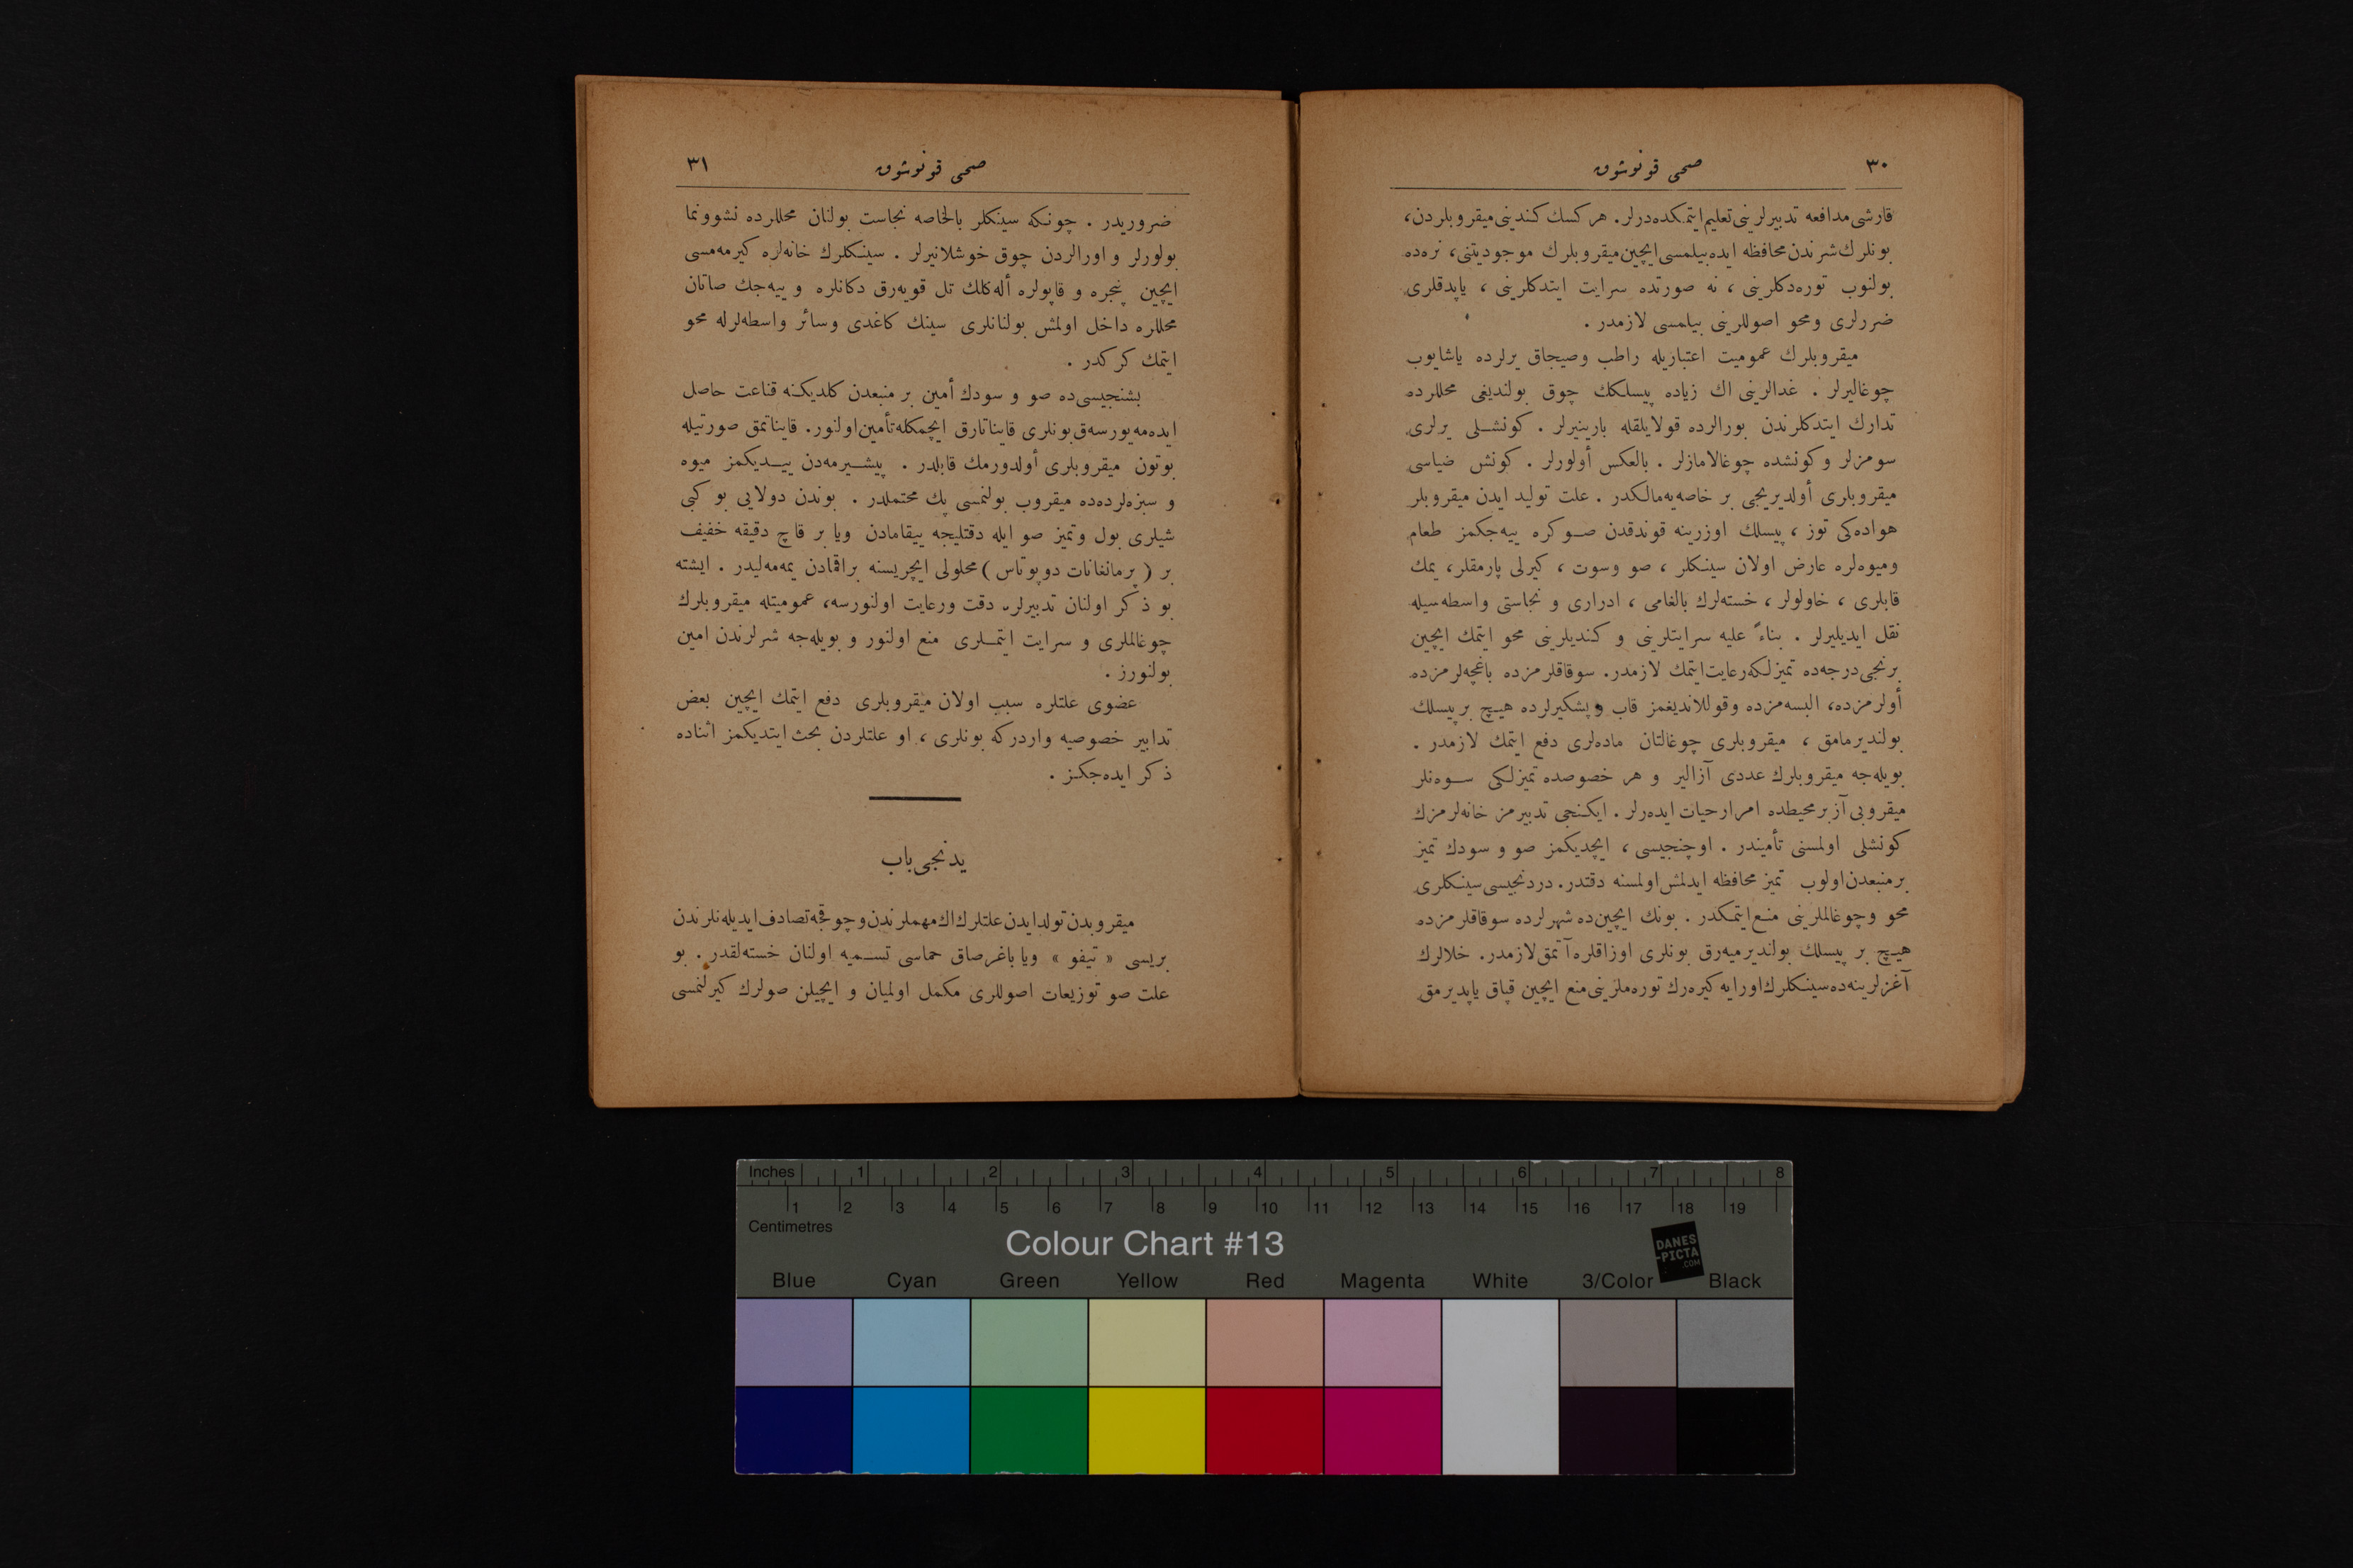 ٣٠
صحی قونوشوق
قارشی مدافعه تدبیرلرینی تعلیم ایتمکده‌درلر. هرکسك کندینی میقروبلردن،
بونلرك شرندن محافظه ایده‌بیلمسی ایچین میقروبلرك موجودیتنی، نره‌ده
بولنوب توره‌دکلرینی ، نه صورتده سرایت ایتدکلرینی ، یاپدقلری
ضررلری ومحو اصوللرینی بیلمسی لازمدر .
میقروبلرك عمومیت اعتباریله راطب وصیجاق یرلرده یاشایوب
چوغالیرلر . غدالرینی اك زیاده پیسلکك چوق بولندیغی محللرده
تدارك ایتدکلرندن بورالرده قولایلقله بارینیرلر . کونشلی یرلری
سومزلر وکونشده چوغالامازلر . بالعکس أولورلر . کونش ضیاسی
میقروبلری أولدیریجی بر خاصه‌یه‌مالکدر . علت تولید ایدن میقروبلر
هواده‌کی توز ، پیسلك اوزرینه قوندقدن صوکره ییه‌جکمز طعام
ومیوه‌لره عارض اولان سینکلر ، صو وسوت ، کیرلی پارمقلر، یمك
قابلری ، خاولولر ، خسته‌لرك بالغامی ، ادراری و نجاستی واسطه‌سیله
نقل ایدیلیرلر . بناءً علیه سرایتلرینی و کندیلرینی محو ایتمك ایچین
برنجی درجه‌ده تمیزلکه رعایت ایتمك لازمدر. سوقاقلرمزده باغچه‌لرمزده
أولرمزده، البسه‌مزده وقوللاندیغمز قاب و پشکیرلرده هیچ برپیسلك
بولندیرمامق ، میقروبلری چوغالتان ماده‌لری دفع ایتمك لازمدر .
بویله‌جه میقروبلرك عددی آزالیر و هر خصوصده تمیزلکی سوه‌نلر
میقروبی آز برمحیطده امرار حیات ایده‌رلر . ایکنجی تدبیرمز خانه‌لرمزك
کونشلی اولمسنی تأمیندر . اوچنجیسی ، ایچدیکمز صو و سودك تمیز
برمنبعدن اولوب تمیز محافظه ایدلمش اولمسنه دقتدر. دردنجیسی سینکلری
محو وچوغالملرینی منع ایتمکدر . بونك ایچین‌ده شهرلرده سوقاقلرمزده
هیچ بر پیسلك بولندیرمیه‌رق بونلری اوزاقلره آتمق لازمدر. خلالرك
آغزلرینه‌ده سینکلرك اورایه کیره‌رك توره‌ملرینی منع ایچین قپاق یاپدیرمق
صحی قونوشوق
٣١
ضروریدر . چونکه سینکلر بالخاصه نجاست بولنان محللرده نشوونما
بولورلر و اورالردن چوق خوشلانیرلر . سینکلرك خانه‌لره کیرمه‌مسی
ایچین پنجره و قاپولره أله‌کلك تل قویه‌رق دکانلره و ییه‌جك صاتان
محللره داخل اولمش بولنانلری سینك کاغدی وسائر واسطه‌لرله محو
ایتمك کرکدر .
بشنجیسی‌ده صو و سودك أمین بر منبعدن کلدیکنه قناعت حاصل
ایده‌مه‌یورسه‌ق بونلری قایناتارق ایچمکله تأمین اولنور. قایناتمق صورتیله
بوتون میقروبلری أولدورمك قابلدر . پیشیرمه‌دن ییدیکمز میوه
و سبزه‌لرده‌ده میقروب بولنمسی پك محتملدر . بوندن دولایی بو کبی
شیلری بول وتمیز صو ایله دقتلیجه ییقامادن ویا بر قاچ دقیقه خفیف
بر ( پرمانغانات دوپوتاس ) محلولی ایچریسنه براقمادن یمه‌مه‌لیدر . ایشته
بو ذکر اولنان تدبیرلره دقت ورعایت اولنورسه، عمومیتله میقروبلرك
چوغالملری و سرایت ایتملری منع اولنور و بویله‌جه شرلرندن امین
بولنورز .
عضوی علتلره سبب اولان میقروبلری دفع ایتمك ایچین بعض
تدابیر خصوصیه واردرکه بونلری ، او علتلردن بحث ایتدیکمز اثناده
ذکر ایده‌جکز .
یدنجی باب
میقروبدن تولد ایدن علتلرك اك مهملرندن و چوقجه تصادف ایدیله‌نلرندن
بریسی « تیفو » ویا باغرصاق حماسی تسمیه اولنان خسته‌لقدر . بو
علت صو توزیعات اصوللری مکمل اولمیان و ایچیلن صولرك کیرلنمسی
Inches 1 2 3 4 5 6 7 8
1 2 3 4 5 6 7 8 9 10 11 12 13 14 15 16 17 18 19
Centimetres
Colour Chart #13
DANES
-PICTA
.COM
Blue Cyan Green Yellow Red Magenta White 3/Color Black